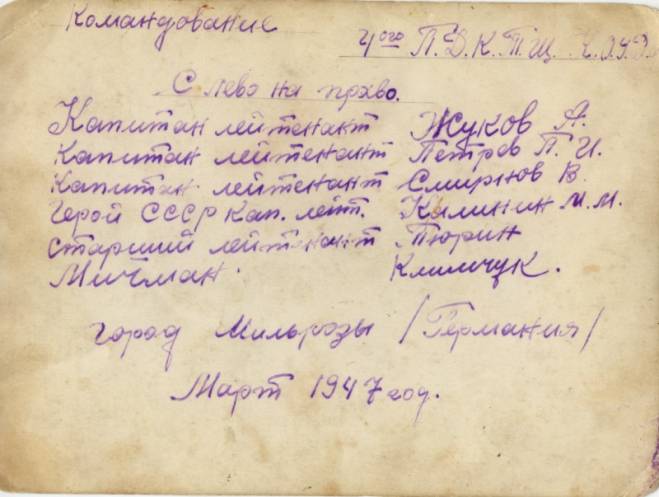 Командование
4ого П.Д.К.Т.Щ.
С лево на право.
Капитан лейтенант Жуков А.
Капитан лейтенант Петров П. И.
Капитан лейтенант Смирнов В.
Герой СССР Кап. лейт. Калинин М.М.
Старший лейтенант Тюрин
Мичман. Климчук.
город Мильрозы /Германия/
Март 1947 год.